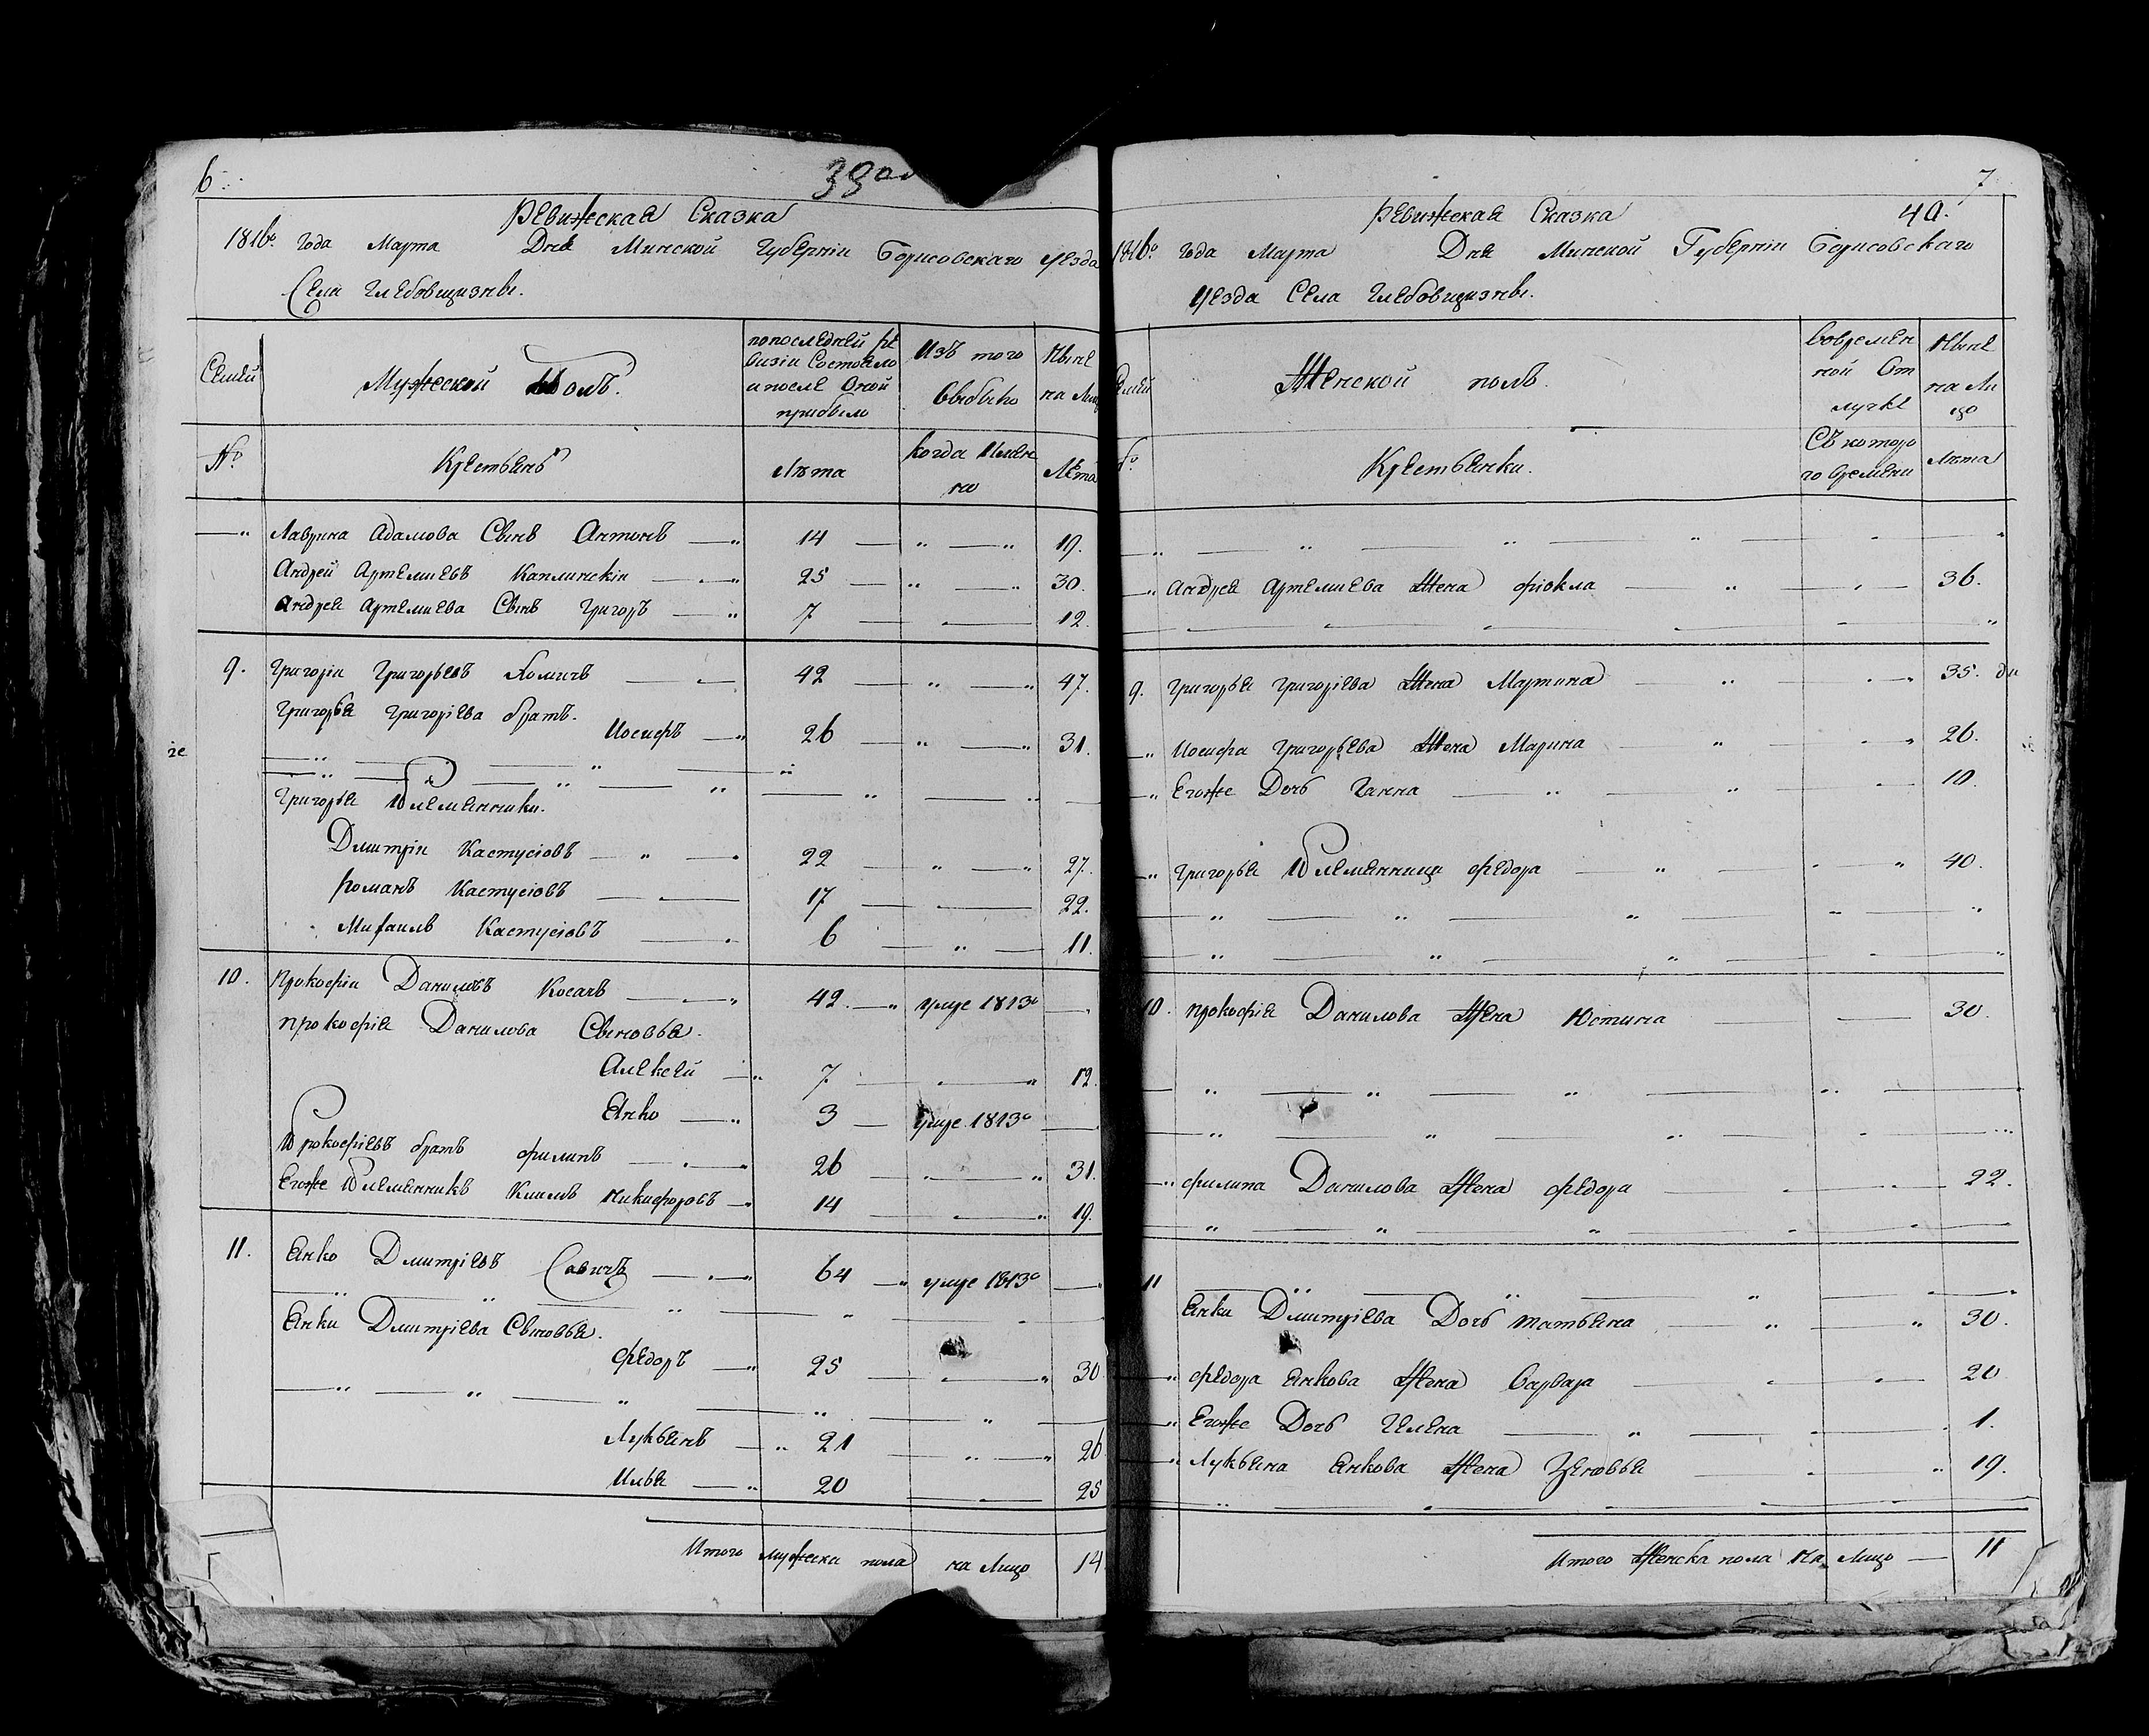 6
39об
Ревижская Сказка
1816го Года Марта Дня Минской Губернiи Борисовскаго уезда
Села Глебовщизны.
Семьи
Мужеской Полъ.
попоследней ре
визiи Состояло
и после Оной
прибыло
Изъ того
выбыло
Ныне
на Лицо
№
Крестьянъ
лѣта
когда Имян
но
Лета
Лаврина Адамова Сынъ Антонъ 14 19.
Андрей Артемиевъ Каплинскiй 25 30.
Андрея Артемиева Сынъ Григоръ 7 12.
9. Григорiй Григорьевъ Хомичъ 42 47.
Григорья Григорiева братъ.
Иосифъ 26 31.
Григорья Племянники.
Дмитрiй Кастусiовъ 22 27.
Романъ Кастусiовъ 17 22.
Михаилъ Кастусiовъ 6 11.
10. Прокофiй Даниловъ Косачъ 42. умре 1813го
Прокофiя Данилова Сыновья.
Алексей 7 12.
Янко 3 умре 1813го
Прокофiевъ братъ Филипъ 26 31.
Егоже Племянникъ Климъ Никифоровъ 14 19.
11. Янко Дмитрiевъ Савичъ 64 умре 1813го
Янки Дмитрiева Сыновья.
Федоръ 25 30
Лукьянъ 21 26
Илья 20 25
Итого мужеска пола на Лицо 14
7
40.
Ревижская Сказка
1816го Года Марта Дня Минской Губернiи Борисовскаго
уезда Села Глебовщизны.
Семьи
Женской полъ.
вовремян
ной От
лучке
Ныне
на Ли
цо
№
Крестьянки.
Съ которо
го времени
лѣта
Андрея Артемиева Жена Фiокла 36.
9. Григорья Григорiева Жена Мутина 35.
Иосифа Григорьева Жена Марина 26.
Егоже Дочь Ганна 10.
Григорья Племянница Федора 40.
10. Прокофiя Данилова Жена Юстина 30.
Филипа Данилова Жена Федора 22.
11
Янки Дмитрiева Дочь Татьяна 30.
Федора Янкова Жена Варвара 20
Егоже Дочь Гелена 1.
Лукьяна Янкова Жена Зеновья 19.
Итого Женска пола На Лицо 11